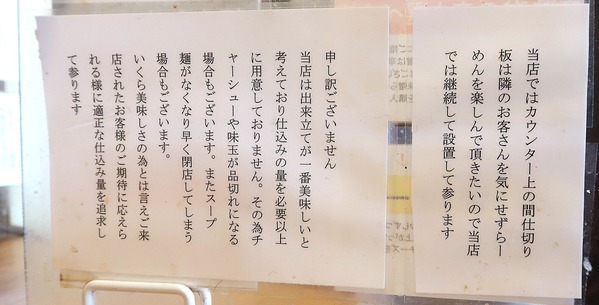 当店ではカウンター上の間仕切り
板は隣のお客さんを気にせずらー
めんを楽しんで頂きたいので当店
では継続して設置して参ります
申し訳ございません
当店は出来立てが一番美味しいと
考えており仕込みの量を必要以上
に用意しておりません。その為チ
ャーシューや味玉が品切れになる
場合もございます。またスープ
麺がなくなり早く閉店してしまう
場合もございます。
いくら美味しさの為とは言えご来
店されたお客様のご期待に応えら
れる様に適正な仕込み量を追求し
て参ります